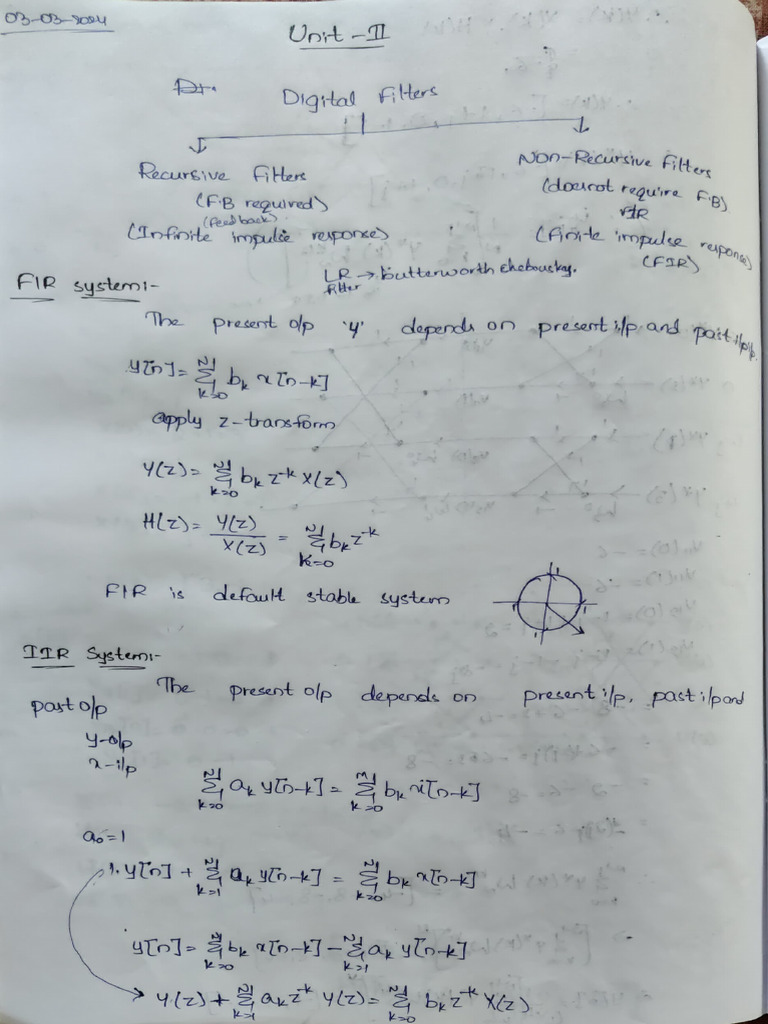 03-03-2024
Unit - II
Digital Filters
Recursive Filters
(F.B required)
(feedback)
(Infinite impulse response)
Non-Recursive Filters
(doesnot require F.B)
(finite impulse response)
(FIR)
LR → butterworth chebousky.
filter
FIR system:-
The present o/p 'y' depends on present i/p and past i/p.
y[n] = Σ_{k=0}^{N} b_k x[n-k]
apply z-transform
Y(z) = Σ_{k=0}^{N} b_k z^{-k} X(z)
H(z) = Y(z)/X(z) = Σ_{k=0}^{N} b_k z^{-k}
FIR is default stable system
IIR System:-
The present o/p depends on present i/p, past i/p and
past o/p
y-o/p
x-i/p
Σ_{k=0}^{N} a_k y[n-k] = Σ_{k=0}^{M} b_k x[n-k]
a_0 = 1
1. y[n] + Σ_{k=1}^{N} a_k y[n-k] = Σ_{k=0}^{N} b_k x[n-k]
y[n] = Σ_{k=0}^{N} b_k x[n-k] - Σ_{k=1}^{N} a_k y[n-k]
Y(z) + Σ_{k=1}^{N} a_k z^{-k} Y(z) = Σ_{k=0}^{N} b_k z^{-k} X(z)